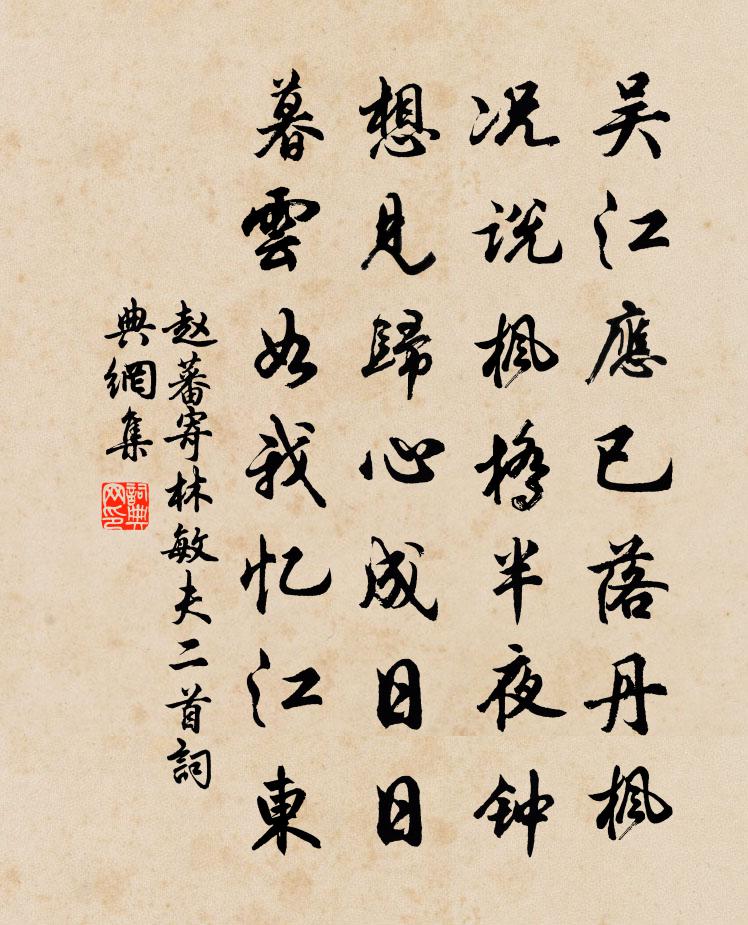 吴江應已落丹楓
况说楓橋半夜钟
想見歸心成日日
暮雲如我忆江東
赵蕃寄林敏夫二首詞
典網集
詞典
网印